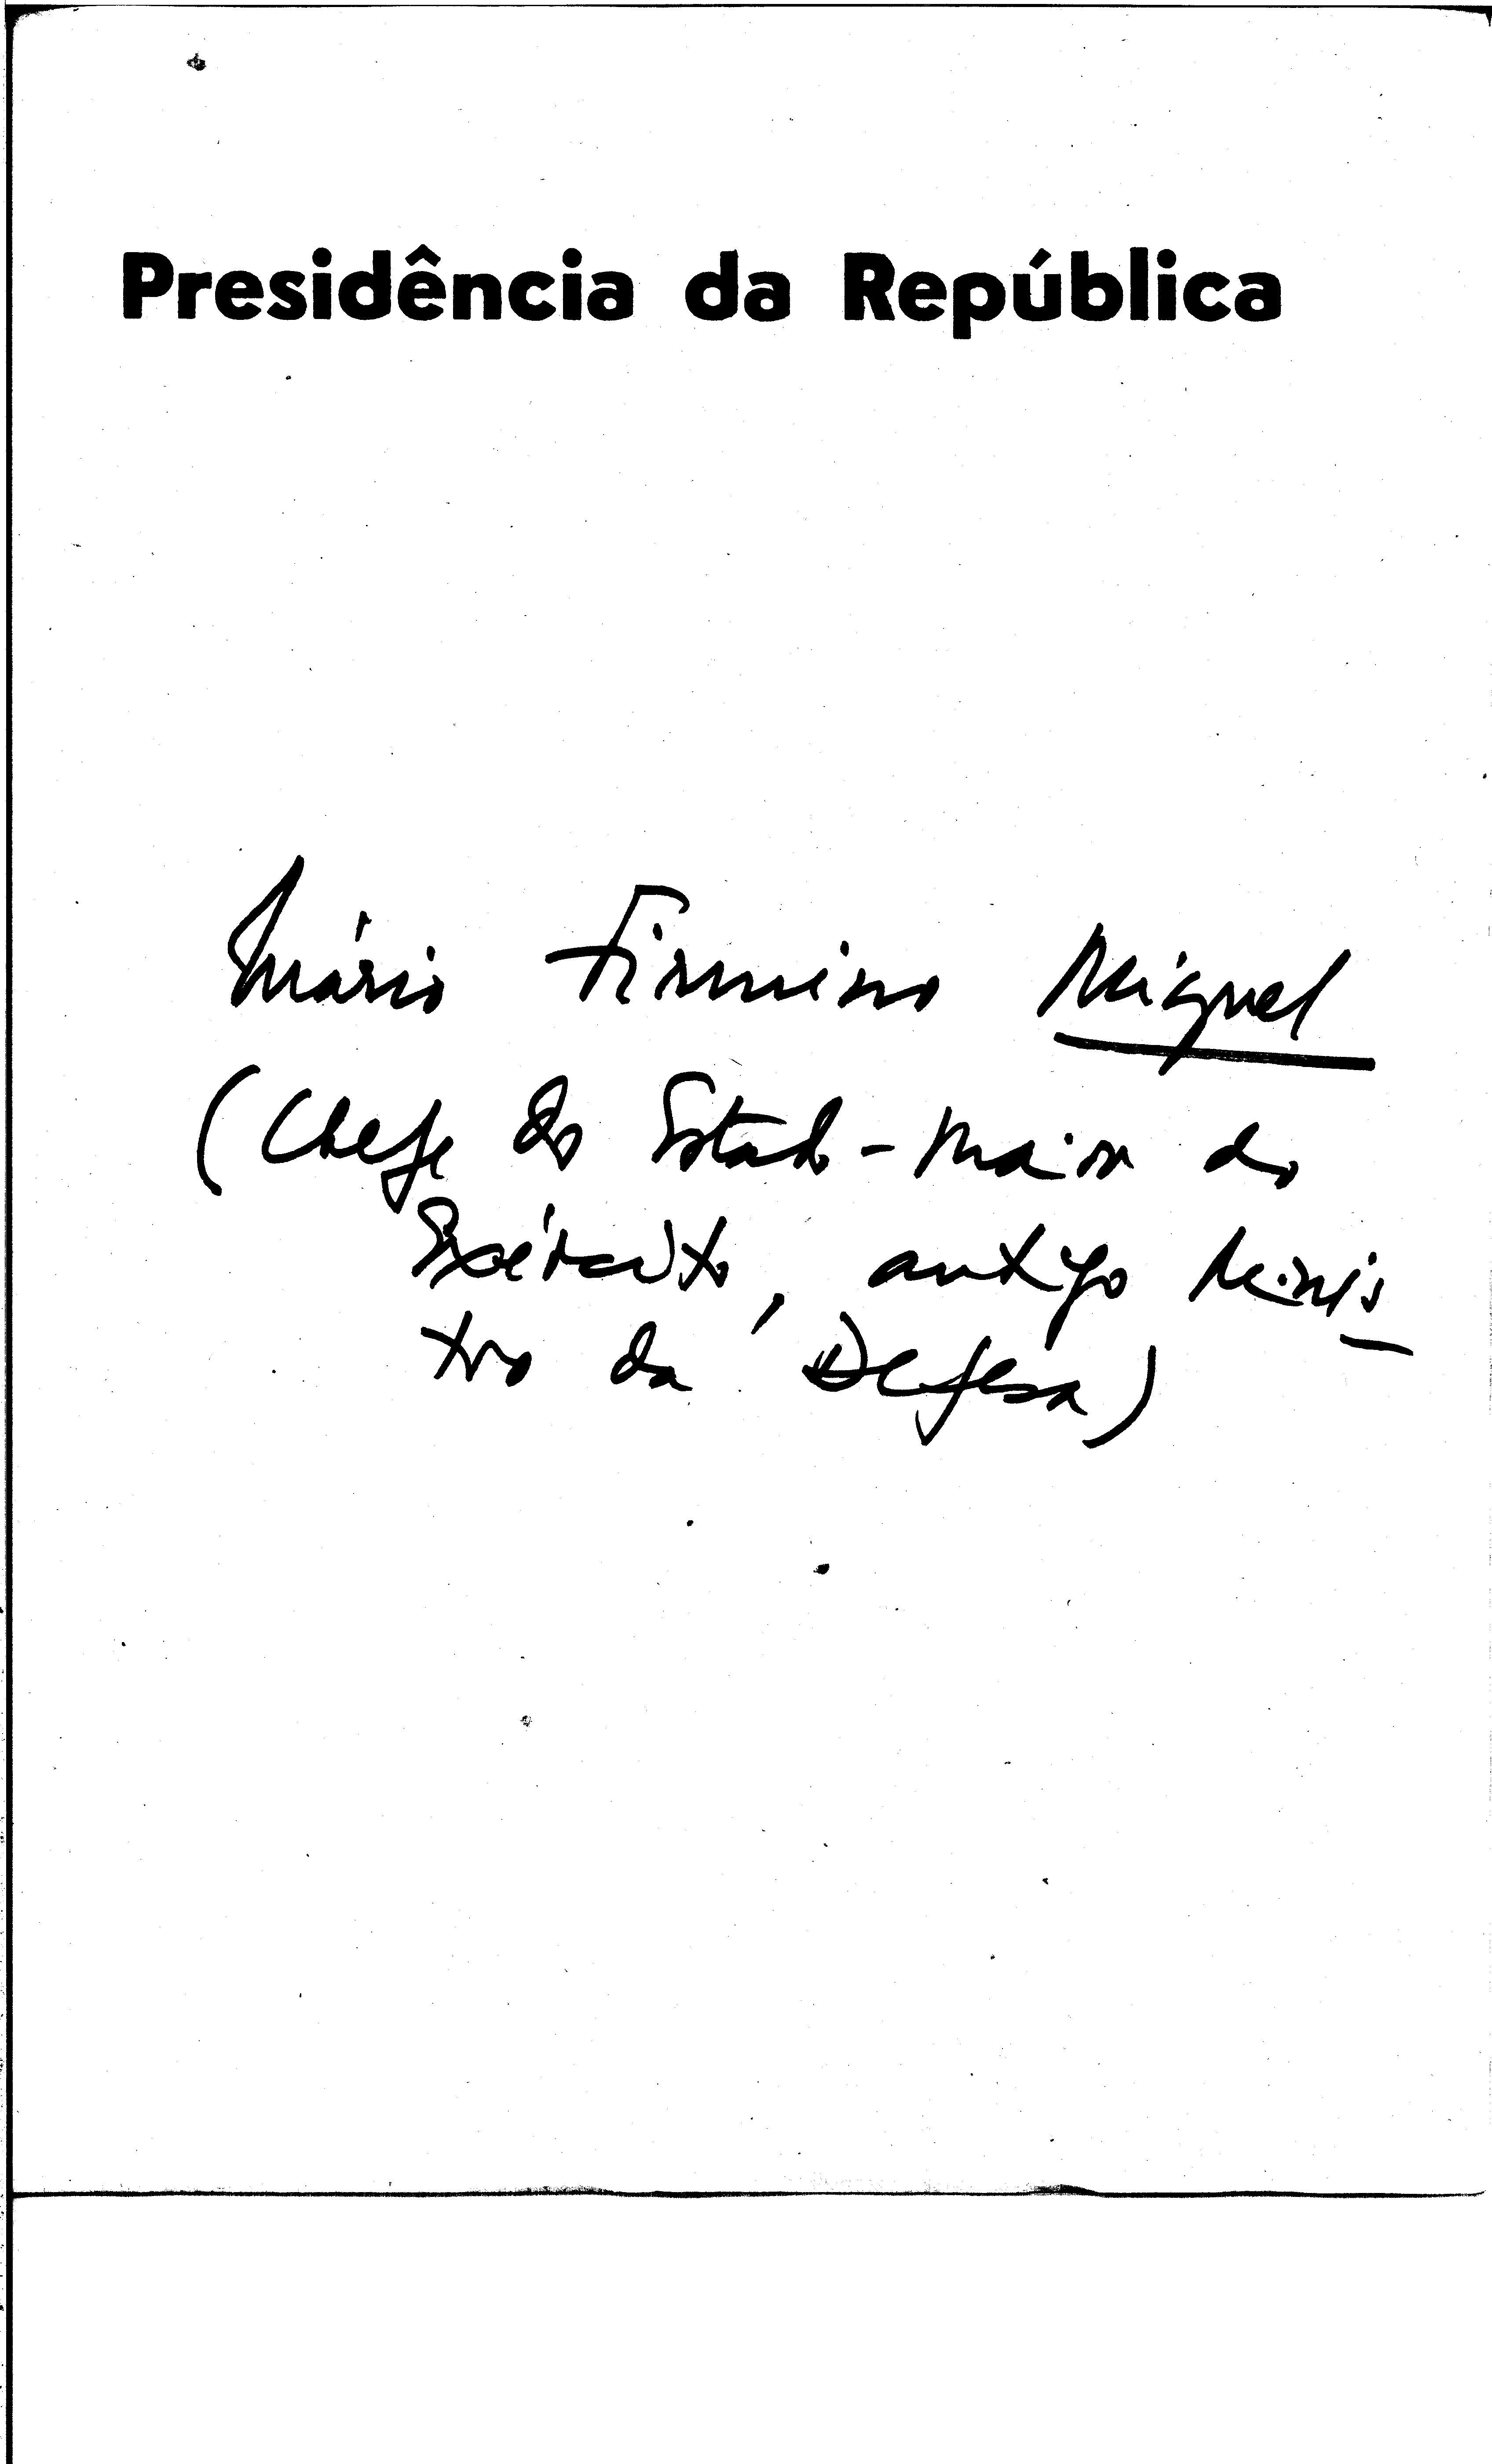 Presidência da República
Mário Firmino Miguel
(Chefe do Estado-Maior do
Exército, antigo Minis
tro da Defesa)